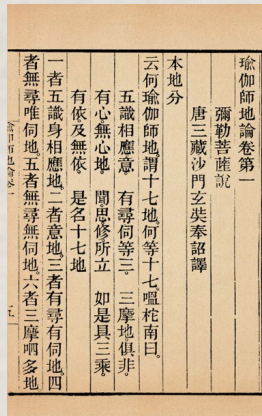 瑜伽師地論卷第一
彌勒菩薩說
唐三藏沙門玄奘奉詔譯
本地分
云何瑜伽師地。謂十七地。何等十七。嗢柁南曰。
五識相應意　有尋伺等三　三摩地俱非。
有心無心地　聞思修所立　如是具三乘。
有依及無依。　是名十七地
一者五識身相應地。二者意地。三者有尋有伺地。四
者無尋唯伺地。五者無尋無伺地。六者三摩呬多地